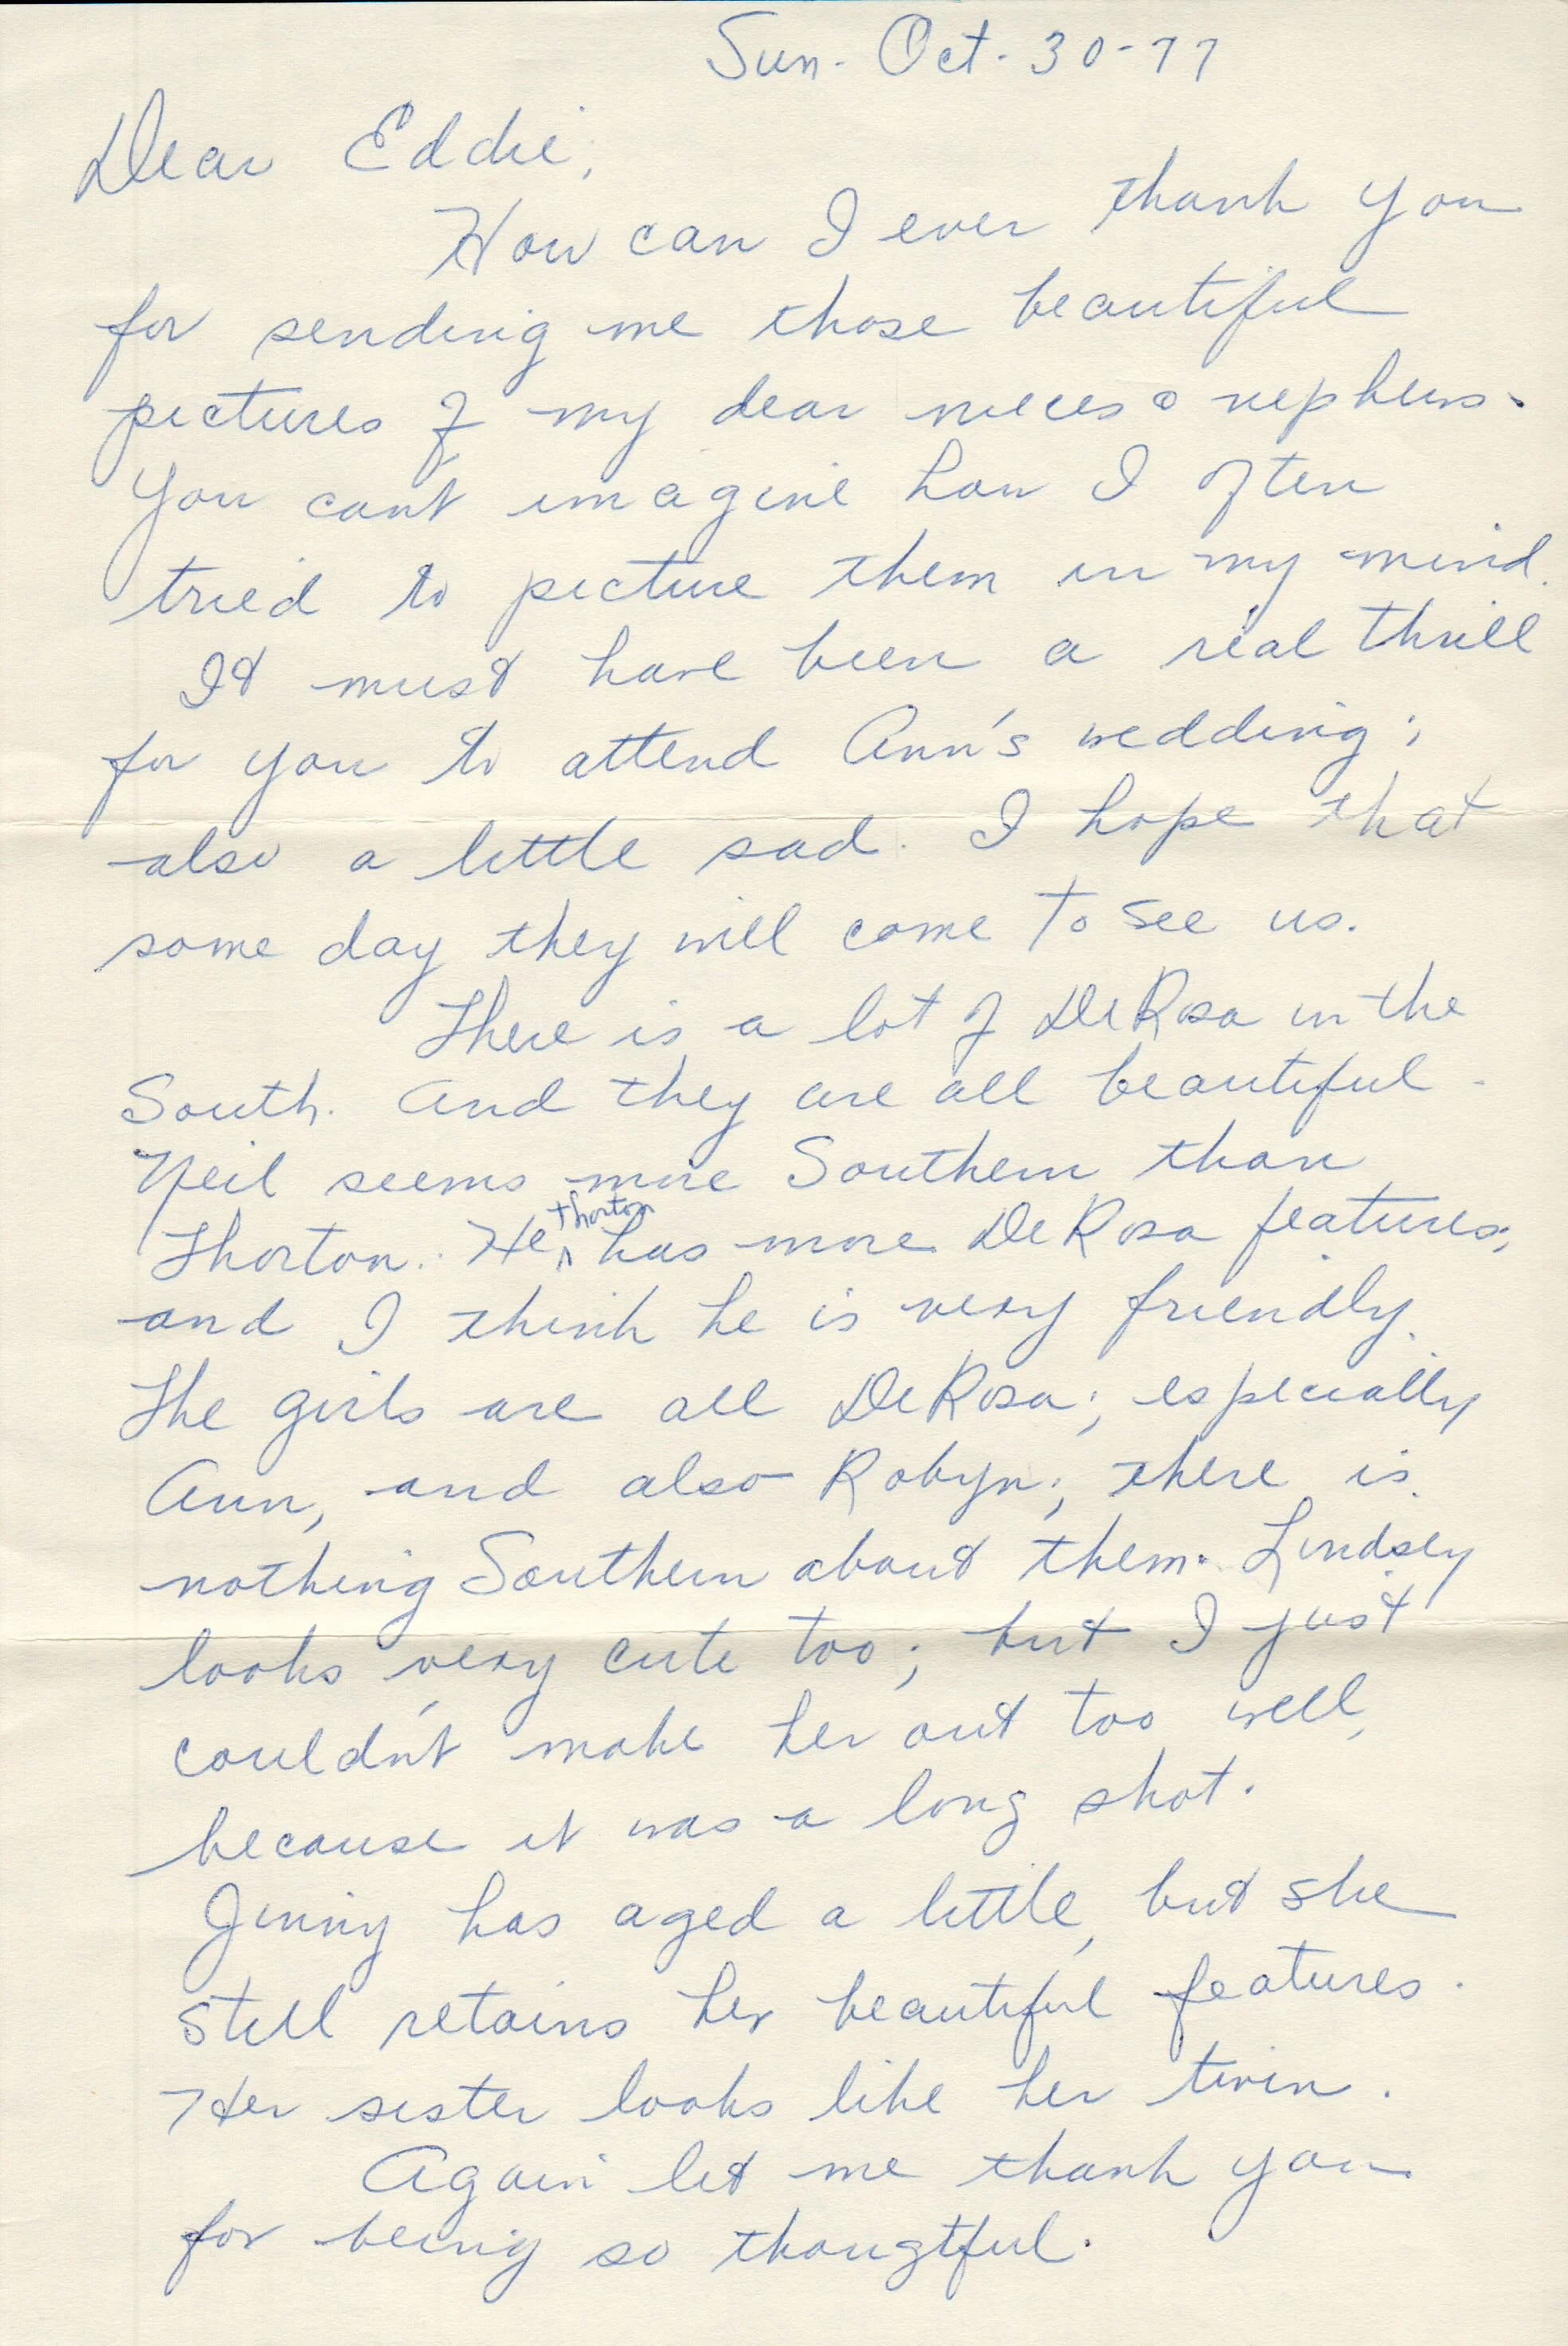 Sun. Oct. 30-77
Dear Eddie,
How can I ever thank you
for sending me those beautiful
pictures of my dear nieces & nephews.
You can't imagine how I often
tried to picture them in my mind.
It must have been a real thrill
for you to attend Ann's wedding;
also a little sad. I hope that
some day they will come to see us.
There is a lot of DeRosa in the
South. And they are all beautiful.
Neil seems more Southern than
Thorton. He ^ Thorton has more DeRosa features,
and I think he is very friendly.
The girls are all DeRosa; especially
Ann, and also Robyn; there is
nothing Southern about them. Lindsey
looks very cute too; but I just
couldn't make her out too well,
because it was a long shot.
Jinny has aged a little, but she
still retains her beautiful features.
Her sister looks like her twin.
Again let me thank you
for being so thougtful.